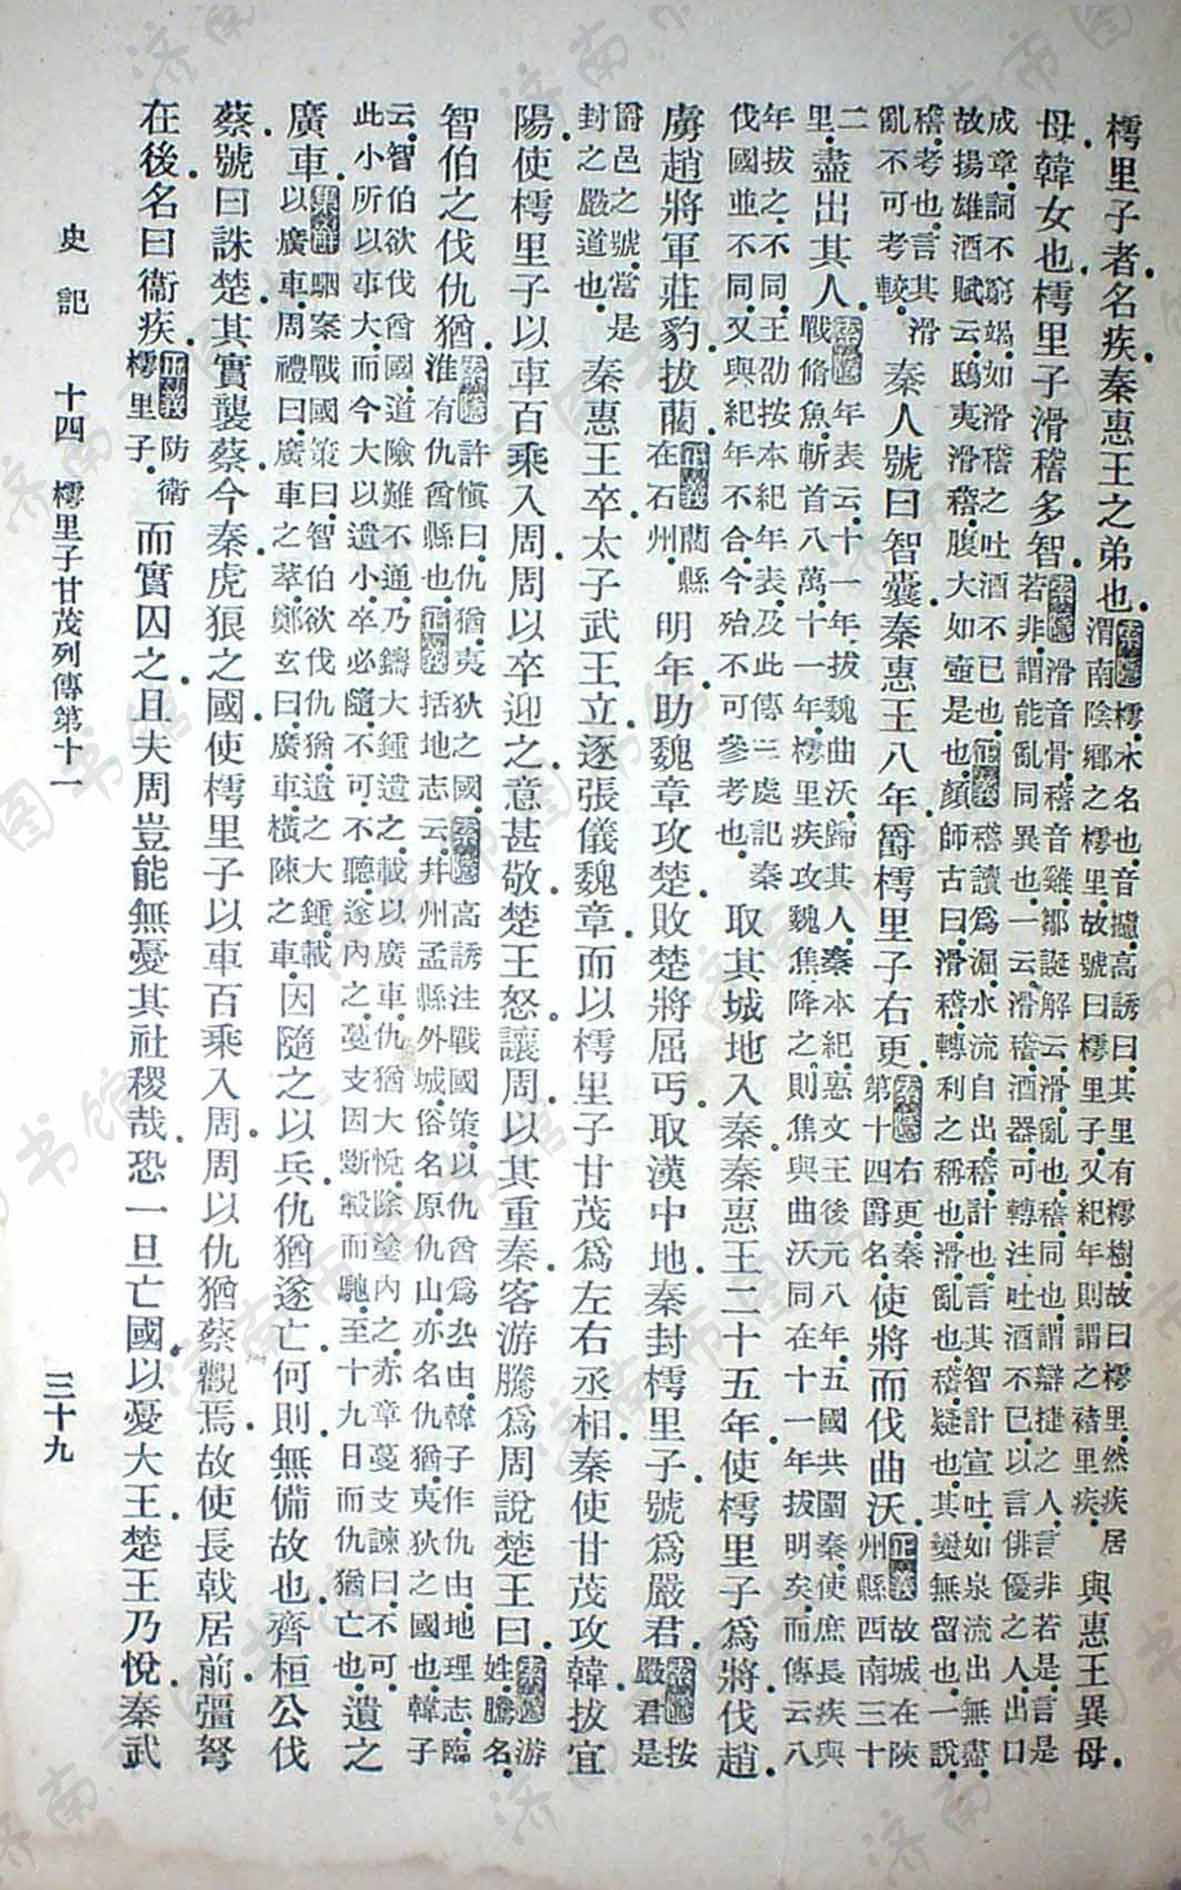 樗里子者。名疾。秦惠王之弟也。索隱樗木名也。音攄。高誘曰。其里有樗樹。故曰樗里。然疾居渭南陰鄉之樗里。故號曰樗里子。又紀年則謂之褚里疾。與惠王異母。
母。韓女也。樗里子滑稽多智。索隱滑音骨。稽音雞。鄒誕解云。滑亂也。稽同也。謂辯捷之人。言非若是。言是若非。謂能亂同異也。一云滑稽酒器。可轉注吐酒不已。以言俳優之人。出口
成章。詞不窮竭。如滑稽之吐酒不已也。正義稽讀爲淈。水流自出。稽計也。言其智計宣吐。如泉流出無盡。故揚雄酒賦云。鴟夷滑稽。腹大如壺是也。顏師古曰。滑稽轉利之稱也。滑亂也。稽疑也。其變無留也。一說。
稽考也。言其滑亂不可考較。秦人號曰智囊。秦惠王八年。爵樗里子右更。索隱右更。秦第十四爵名。使將而伐曲沃。正義故城在陝州縣西南三十
二里。盡出其人。索隱年表云。十一年。拔魏曲沃。歸其人。秦本紀。惠文王後元八年。五國共圍秦。使庶長疾與戰脩魚。斬首八萬。十一年。樗里疾攻魏焦降之。則焦與曲沃同在十一年拔明矣。而傳云八
年拔之。不同。王劭按本紀年表。及此傳三處記秦伐國並不同。又與紀年不合。今殆不可參考也。取其城地入秦。秦惠王二十五年。使樗里子爲將。伐趙。
虜趙將軍莊豹。拔藺。正義藺縣在石州。明年。助魏章攻楚。敗楚將屈丐。取漢中地。秦封樗里子。號爲嚴君。索隱按嚴君是
爵邑之號。當是封之嚴道也。秦惠王卒。太子武王立。逐張儀魏章。而以樗里子甘茂爲左右丞相。秦使甘茂攻韓。拔宜
陽。使樗里子以車百乘入周。周以卒迎之。意甚敬。楚王怒。讓周。以其重秦客。游騰爲周說楚王曰。索隱游姓。騰名。
智伯之伐仇猶。索隱許愼曰。仇猶。夷狄之國。索隱高誘注戰國策。以仇酋爲厹由。韓子作仇由。地理志。臨淮有仇酋縣也。正義括地志云。幷州孟縣外城。俗名原仇山。亦名仇猶。夷狄之國也。韓子
云。智伯欲伐酋國。道險難不通。乃鑄大鍾遺之。載以廣車。仇猶大悅。除塗內之。赤章蔓支諫曰。不可。此小所以事大。而今大以遺小。卒必隨。不可。不聽。遂內之。蔓支因斷轂而馳。至十九日而仇猶亡也。遺之
廣車。集解駰案戰國策曰。智伯欲伐仇猶。遺之大鍾。載以廣車。周禮曰。廣車之萃。鄭玄曰。廣車。橫陳之車。因隨之以兵。仇猶遂亡。何則。無備故也。齊桓公伐
蔡。號曰誅楚。其實襲蔡。今秦。虎狼之國。使樗里子以車百乘入周。周以仇猶蔡觀焉。故使長戟居前。彊弩
在後。名曰衞疾。正義防衛樗里子。而實囚之。且夫周豈能無憂其社稷哉。恐一旦亡國。以憂大王。楚王乃悅。秦武
史記　十四　樗里子甘茂列傳第十一　三十九
济南市图书馆